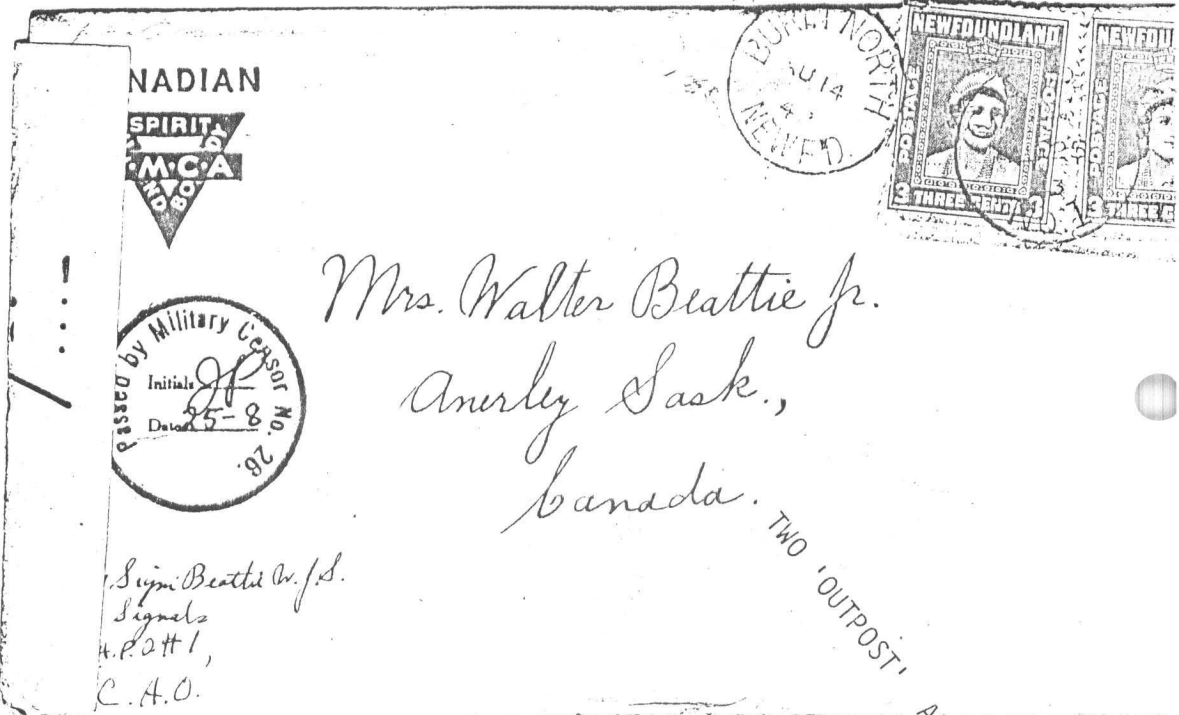 NADIAN
SPIRIT
M·C·A
BURIN NORTH
AU 14
NEWF'D.
NEWFOUNDLAND
POSTAGE
POSTAGE
3 THREE CENTS 3
NEWFOU
POSTAGE
3 THREE C
Passed by Military Censor No. 26.
Initials JP
Date 25-8
Mrs. Walter Beattie Jr.
Anerley Sask.,
Canada.
TWO 'OUTPOST'
Sigm Beattie W.J.S.
Signals
#1,
C.A.O.